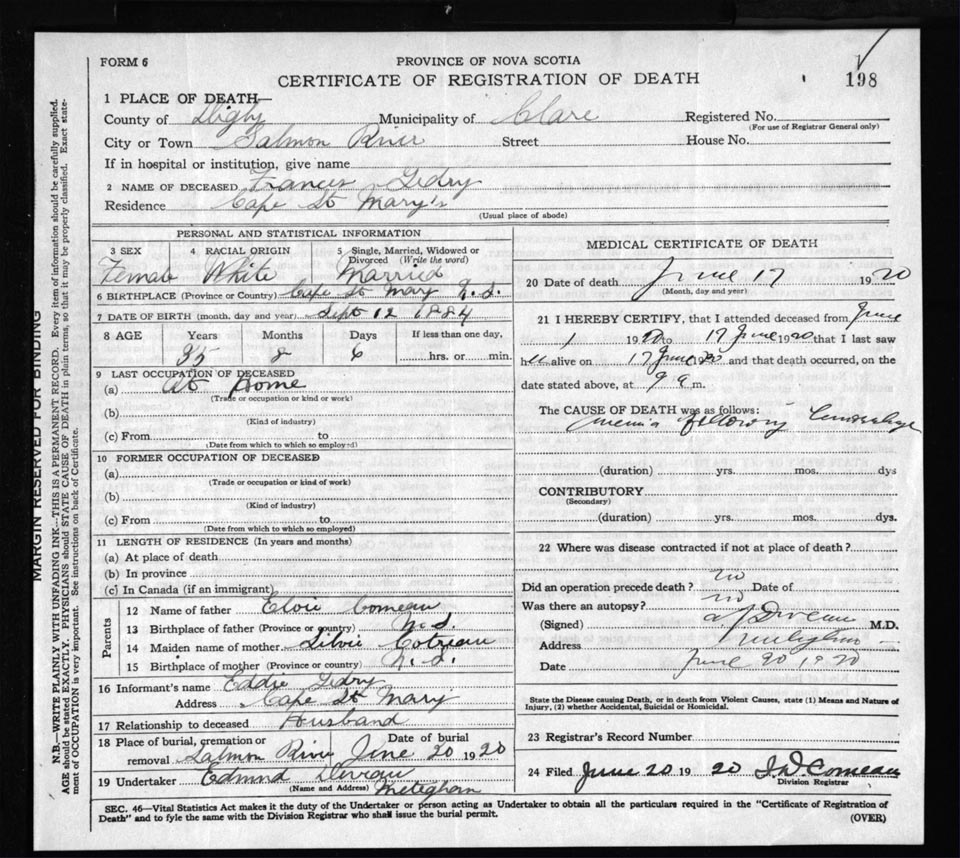 FORM 6
PROVINCE OF NOVA SCOTIA
CERTIFICATE OF REGISTRATION OF DEATH
198
1 PLACE OF DEATH—
County of Digby Municipality of Clare Registered No.
(For use of Registrar General only)
City or Town Salmon River Street House No.
If in hospital or institution, give name
2 NAME OF DECEASED Frances Gedry
Residence Cape St Mary's
(Usual place of abode)
PERSONAL AND STATISTICAL INFORMATION
3 SEX 4 RACIAL ORIGIN 5 Single, Married, Widowed or Divorced (Write the word)
Female White Married
6 BIRTHPLACE (Province or Country) Cape St Mary N.S.
7 DATE OF BIRTH (month, day and year) Sept 12 1884
8 AGE Years Months Days If less than one day,
35 8 6 hrs. or min.
9 LAST OCCUPATION OF DECEASED
(a) At Home
(Trade or occupation or kind or work)
(b)
(Kind of industry)
(c) From to
(Date from which to which so employed)
10 FORMER OCCUPATION OF DECEASED
(a)
(Trade or occupation or kind of work)
(b)
(Kind of industry)
(c) From to
(Date from which to which so employed)
11 LENGTH OF RESIDENCE (In years and months)
(a) At place of death
(b) In province
(c) In Canada (if an immigrant)
Parents
12 Name of father Elvie Comeau
13 Birthplace of father (Province or country) N.S.
14 Maiden name of mother Silvie
15 Birthplace of mother (Province or country) N.S.
16 Informant's name Eddie Gedry
Address Cape St Mary
17 Relationship to deceased Husband
18 Place of burial, cremation or removal Salmon River Date of burial June 20 1920
19 Undertaker Edmund Deveau
(Name and Address) Meteghan
MEDICAL CERTIFICATE OF DEATH
20 Date of death June 17 1920
(Month, day and year)
21 I HEREBY CERTIFY, that I attended deceased from June
1 1920 to 17 June 1920 that I last saw
her alive on 17 June 20 and that death occurred, on the
date stated above, at 9 a m.
The CAUSE OF DEATH was as follows:
following
(duration) yrs. mos. dys
CONTRIBUTORY
(Secondary)
(duration) yrs. mos. dys.
22 Where was disease contracted if not at place of death?
Did an operation precede death? no Date of
Was there an autopsy? no
(Signed) M.D.
Address
Date June 20 1920
State the Disease causing Death, or in death from Violent Causes, state (1) Means and Nature of Injury, (2) whether Accidental, Suicidal or Homicidal.
23 Registrar's Record Number
24 Filed June 20 1920 Comeau
Division Registrar
SEC. 46—Vital Statistics Act makes it the duty of the Undertaker or person acting as Undertaker to obtain all the particulars required in the "Certificate of Registration of
Death" and to fyle the same with the Division Registrar who shall issue the burial permit.
(OVER)
MARGIN RESERVED FOR BINDING
N.B.—WRITE PLAINLY WITH UNFADING INK—THIS IS A PERMANENT RECORD. Every item of information should be carefully supplied.
AGE should be stated EXACTLY. PHYSICIANS should STATE CAUSE OF DEATH in plain terms, so that it may be properly classified. Exact state-
ment of OCCUPATION is very important. See instructions on back of Certificate.